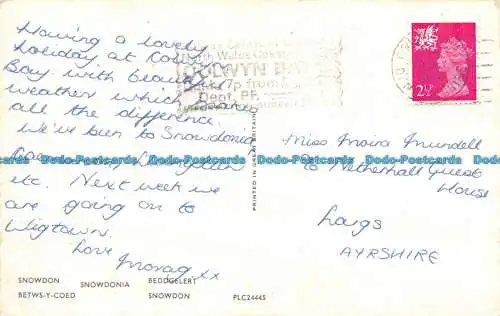 Having a lovely
holiday at Colwyn
Bay with beautiful
weather which makes
all the difference.
We've been to Snowdonia
Llangollen
etc. Next week we
are going to
Wigtown.
Love
Morag xx
North Wales
COLWYN BAY
7p from
Dept. PF.
2½P
Miss Moira Mundell
Netherhall Guest
House
Largs
AYRSHIRE
PRINTED IN GREAT BRITAIN
SNOWDON SNOWDONIA BEDDGELERT
BETWS-Y-COED SNOWDON PLC24445
Dodo-Postcards Dodo-Postcards Dodo-Postcards Dodo-Postcards Dodo-Postcards Dodo-Postcards